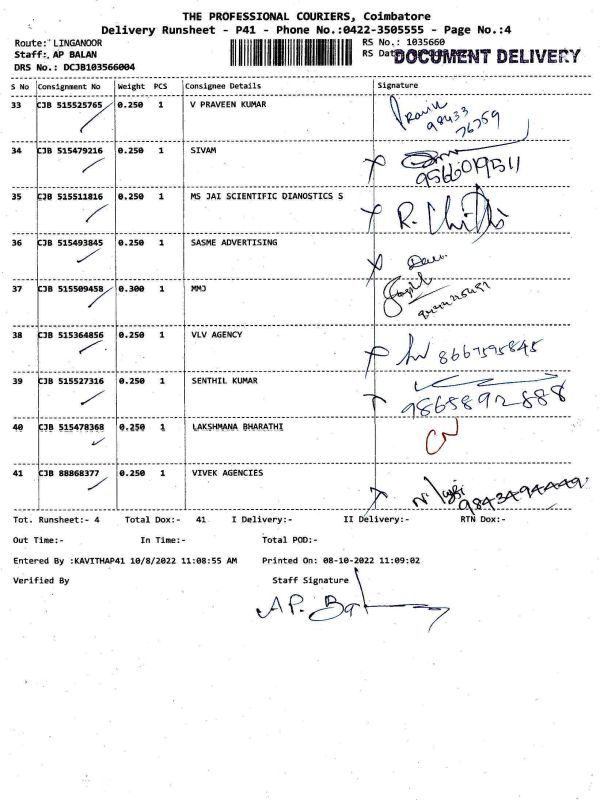 THE PROFESSIONAL COURIERS, Coimbatore
Delivery Runsheet - P41 - Phone No.:0422-3505555 - Page No.:4
Route: LINGANOOR RS No.: 1035660
Staff: AP BALAN RS Dat DOCUMENT DELIVERY
DRS No.: DCJB103566004
S No Consignment No Weight PCS Consignee Details Signature
33 CJB 515525765 0.250 1 V PRAVEEN KUMAR
98433
76759
34 CJB 515479216 0.250 1 SIVAM
9566019511
35 CJB 515511816 0.250 1 MS JAI SCIENTIFIC DIANOSTICS S R.
36 CJB 515493845 0.250 1 SASME ADVERTISING
37 CJB 515509458 0.300 1 MMJ
38 CJB 515364856 0.250 1 VLV AGENCY 8667595845
39 CJB 515527316 0.250 1 SENTHIL KUMAR
9865892888
40 CJB 515478368 0.250 1 LAKSHMANA BHARATHI
41 CJB 88868377 0.250 1 VIVEK AGENCIES
9843494449
Tot. Runsheet:- 4 Total Dox:- 41 I Delivery:- II Delivery:- RTN Dox:-
Out Time:- In Time:- Total POD:-
Entered By :KAVITHAP41 10/8/2022 11:08:55 AM Printed On: 08-10-2022 11:09:02
Verified By Staff Signature
A.P. Bal